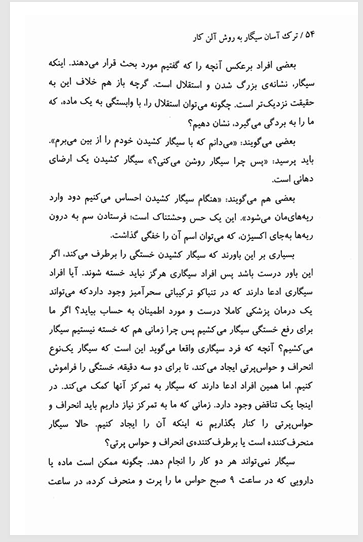 ۵۴ / ترک آسان سیگار به روش آلن کار
بعضی افراد برعکس آنچه را که گفتیم مورد بحث قرار می‌دهند. اینکه
سیگار، نشانه‌ی بزرگ شدن و استقلال است. گرچه باز هم خلاف این به
حقیقت نزدیک‌تر است. چگونه می‌توان استقلال را، با وابستگی به یک ماده، که
ما را به بردگی می‌گیرد، نشان دهیم؟
بعضی می‌گویند: «می‌دانم که با سیگار کشیدن خودم را از بین می‌برم».
باید پرسید: «پس چرا سیگار روشن می‌کنی؟» سیگار کشیدن یک ارضای
دهانی است.
بعضی هم می‌گویند: «هنگام سیگار کشیدن احساس می‌کنیم دود وارد
ریه‌های‌مان می‌شود». این یک حس وحشتناک است؛ فرستادن سم به درون
ریه‌ها به‌جای اکسیژن، که می‌توان اسم آن را خفگی گذاشت.
بسیاری بر این باورند که سیگار کشیدن خستگی را برطرف می‌کند، اگر
این باور درست باشد پس افراد سیگاری هرگز نباید خسته شوند. آیا افراد
سیگاری ادعا دارند که در تنباکو ترکیباتی سحرآمیز وجود داردکه می‌تواند
یک درمان پزشکی کاملا درست و مورد اطمینان به حساب بیاید؟ اگر ما
برای رفع خستگی سیگار می‌کشیم پس چرا زمانی هم که خسته نیستیم سیگار
می‌کشیم؟ آنچه که فرد سیگاری واقعا می‌گوید این است که سیگار یک‌نوع
انحراف و حواس‌پرتی ایجاد می‌کند، تا برای دو سه دقیقه، خستگی را فراموش
کنیم. اما همین افراد ادعا دارند که سیگار به تمرکز آنها کمک می‌کند. در
اینجا یک تناقض وجود دارد. زمانی که ما به تمرکز نیاز داریم باید انحراف و
حواس‌پرتی را کنار بگذاریم نه اینکه آن را ایجاد کنیم. حالا سیگار
منحرف‌کننده است یا برطرف‌کننده‌ی انحراف و حواس پرتی؟
سیگار نمی‌تواند هر دو کار را انجام دهد. چگونه ممکن است ماده یا
دارویی که در ساعت ۹ صبح حواس ما را پرت و منحرف کرده، در ساعت